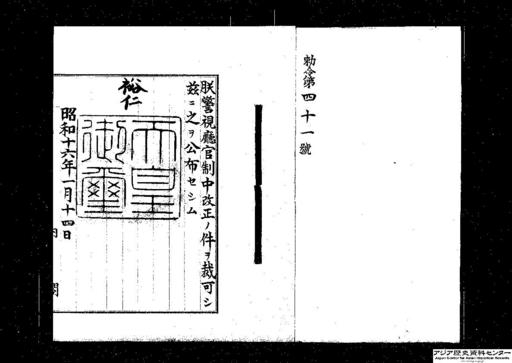 勅令第四十一號
朕警視廳官制中改正ノ件ヲ裁可シ
茲ニ之ヲ公布セシム
裕仁
天皇
御璽
昭和十六年一月十四日
内閣
アジア歴史資料センター
Japan Center for Asian Historical Records